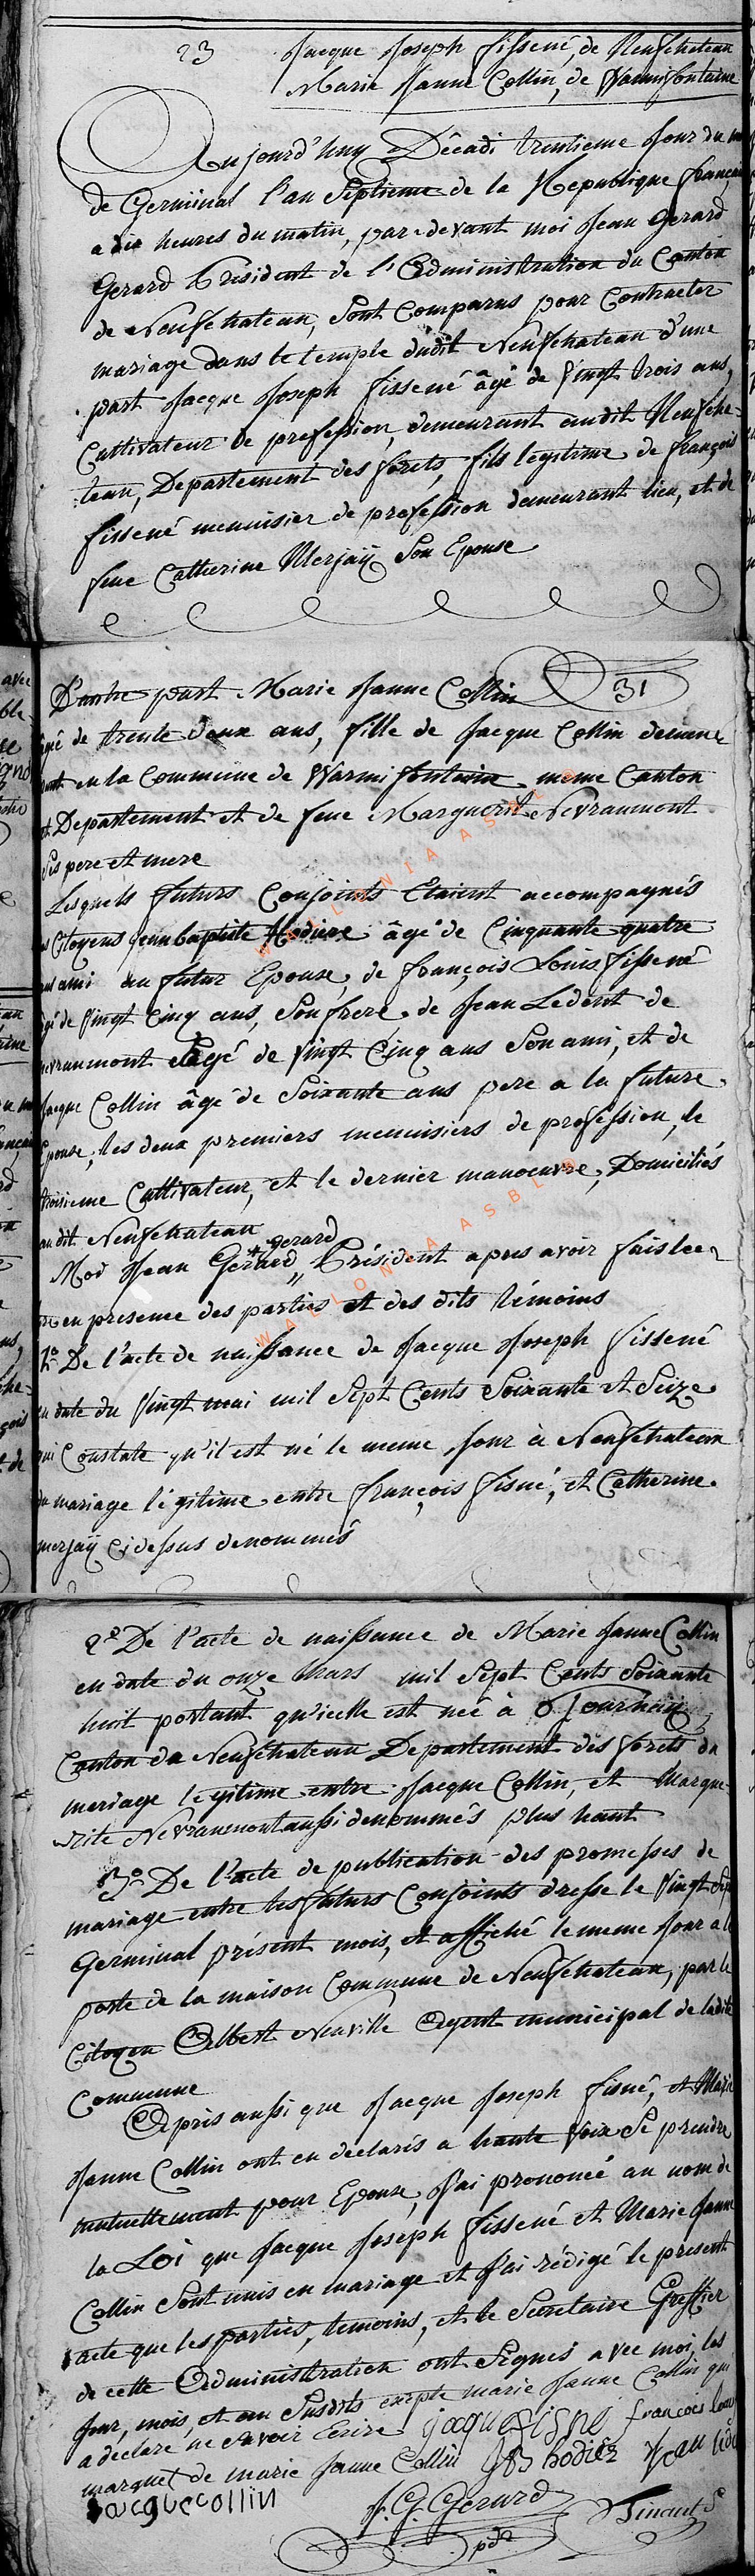 23 Jacque Joseph fissené, de Neufchateau
Marie Janne Collin, de Warmifontaine
Aujourd'huy Décadi trentieme Jour du
de Germinal l'an Septieme de la Republique français
a dix heures du matin, par devant moi Jean Gerard
Gerard President de l'Administration du Canton
de Neufchateau, sont Comparus pour Contracter
mariage dans le temple dudit Neufchateau d'une
part Jacque Joseph fissené âgé de Vingt trois ans,
Cultivateur de profession, demeurant audit Neufcha=
teau, Departement des forets, fils legitime de françois
fissené menuisier de profession demeurant lieu, et de
feue Catherine Merjaÿ Son Epouse
D'autre part Marie Janne Collin 31
âgé de trente deux ans, fille de Jacque Collin demeu=
rant en la Commune de Warmifontaine meme Canton
et Departement et de feue Marguerite Nevraumont
ses pere et mere
Lesquels futurs Conjoints Etaient accompagnés
Citoyens Jean baptiste Hodiere âgé de Cinquante quatre
ans ami au futur Epouse, de françois Louis fissené
âgé de Vingt Cinq ans, Son frere, de Jean Ledent de
nevraumont âgé de Vingt Cinq ans Son ami, et de
Jacque Collin âgé de Soixante ans pere a la future
Epouse, les deux premiers menuisiers de profession, le
troisieme Cultivateur, et le dernier manoeuvre, Domiciliés
audit Neufchateau
Moi Jean Gerard + gerard, Président apres avoir fais lec=
ture en presence des parties et des dits témoins
1º De l'acte de naissance de Jacque Joseph fissené
en date du Vingt mai mil Sept Cents Soixante et Seize
qui Constate qu'il est né le meme Jour à Neufchateau
du mariage légitime entre françois fisné, et Catherine
merjaÿ Ci dessus denommés
2º De l'acte de naissance de Marie Janne Collin
en date du onze Mars mil Sept Cents Soixante
huit portant qu'icelle est née à Journaÿ
Canton de Neufchateau Departement des forets du
mariage legitime entre Jacque Collin, et Margue=
rite Nevraumont aussi denommés plus haut
3º De l'acte de publication des promesses de
mariage entre les futurs Conjoints dresse le Vingt Sept
Germinal présent mois, et affiché le meme Jour a la
porte de la maison Commune de Neufchateau, par le
Citoyen Albert Neuville Agent municipal de ladite
Commune
Apris aussi que Jacque Joseph fisné, et Marie
Janne Collin ont eu declarés a haute Voix Se prendre
mutuellement pour Epoux, J'ai prononcé au nom de
la Loi que Jacque Joseph fissené et Marie Janne
Collin Sont unis en mariage et J'ai rédigé le present
acte que les parties, temoins, et le Secretaire Greffier
de cette Administration ont Signés avec moi, les
Jour, mois, et an Susdits excepte marie Janne Collin qui
a declaré ne Savoir Ecrire jacque fisné francois louis
marque + de marie Janne Collin JB hodiér Jean
Jacque collin J. G. Gerard pdt Dinant S
WALLONIA ASBL ©
WALLONIA ASBL ©